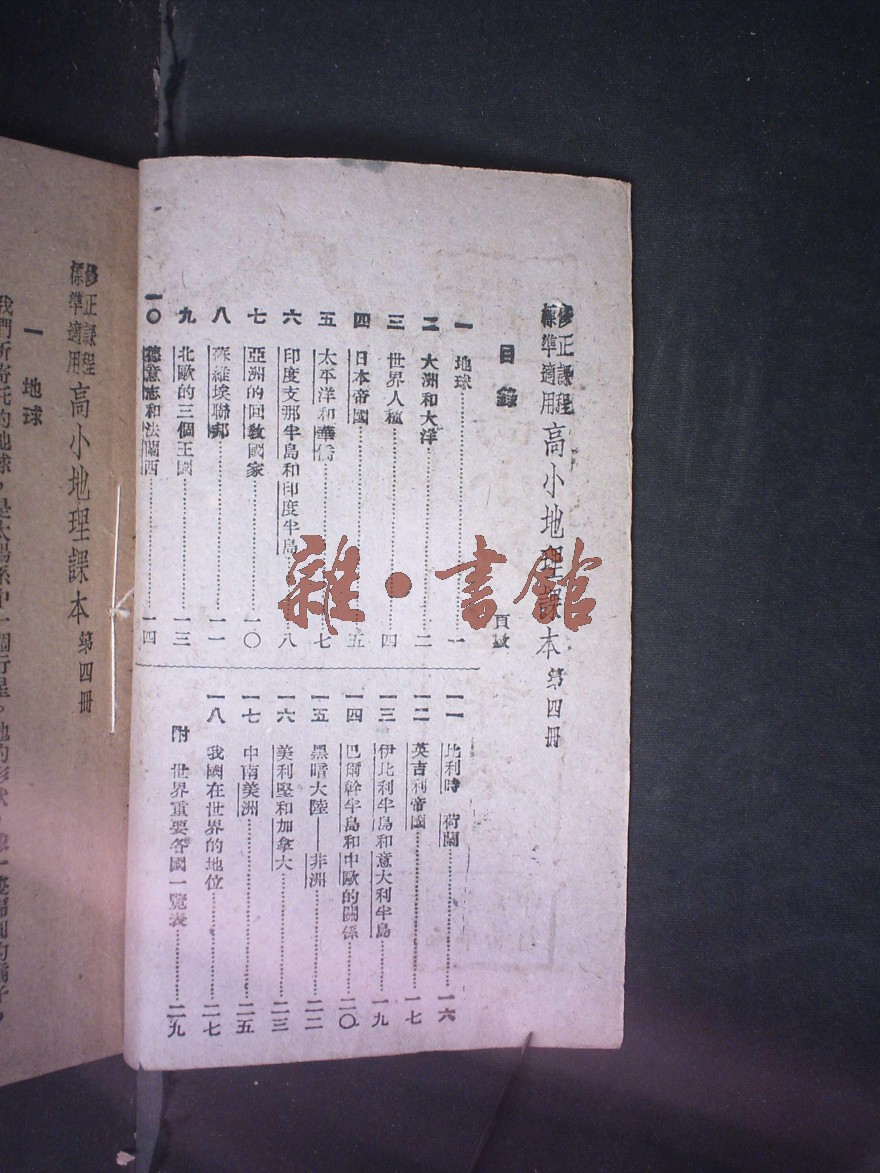 修正課程
標準適用
高小地理課本 第四冊
目錄 頁數
一 地球 一
二 大洲和大洋 二
三 世界人種 四
四 日本帝國 五
五 太平洋和華僑 七
六 印度支那半島和印度半島 八
七 亞洲的回教國家 一〇
八 蘇維埃聯邦 一一
九 北歐的三個王國 一三
一〇 德意志和法蘭西 一四
一一 比利時 荷蘭 一六
一二 英吉利帝國 一七
一三 伊比利半島和意大利半島 一九
一四 巴爾幹半島和中歐的關係 二〇
一五 黑暗大陸——非洲 二二
一六 美利堅和加拿大 二三
一七 中南美洲 二五
一八 我國在世界的地位 二七
附 世界重要各國一覽表 二九
雜·書館
修正課程
標準適用
高小地理課本 第四冊
一 地球
我們所寄托的地球，是太陽系中一個行星。